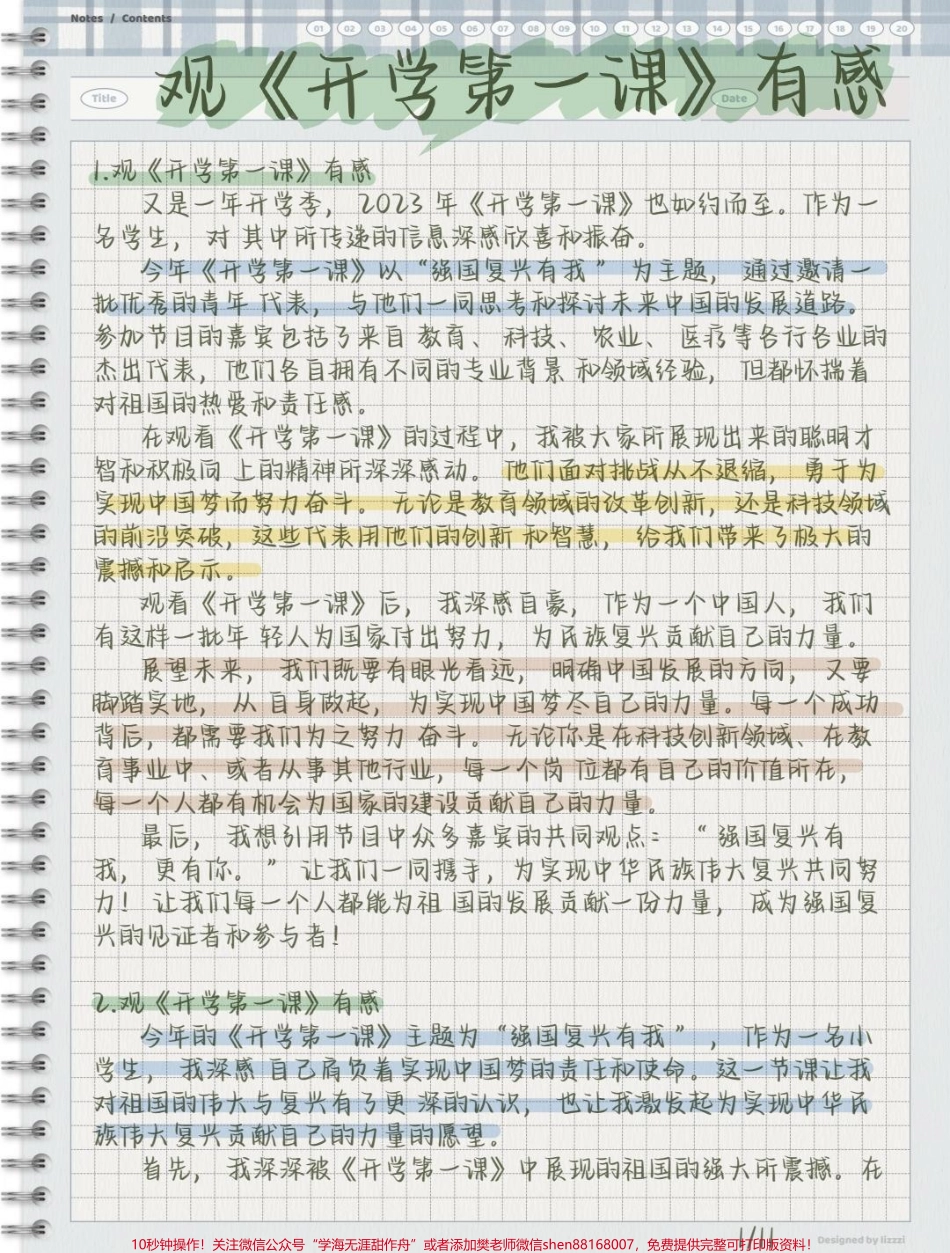 Notes / Contents
01 02 03 04 05 06 07 08 09 10 11 12 13 14 15 16 17 18 19 20
观《开学第一课》有感
Title
Date
1.观《开学第一课》有感
又是一年开学季， 2023 年《开学第一课》也如约而至。作为一
名学生， 对 其中所传递的信息深感欣喜和振奋。
今年《开学第一课》以“强国复兴有我 ” 为主题， 通过邀请一
批优秀的青年 代表， 与他们一同思考和探讨未来中国的发展道路。
参加节目的嘉宾包括了来自 教育、 科技、 农业、 医疗等各行各业的
杰出代表，他们各自拥有不同的专业背景 和领域经验， 但都怀揣着
对祖国的热爱和责任感。
在观看《开学第一课》的过程中，我被大家所展现出来的聪明才
智和积极向 上的精神所深深感动。 他们面对挑战从不退缩， 勇于为
实现中国梦而努力奋斗。 无论是教育领域的改革创新，还是科技领域
的前沿突破， 这些代表用他们的创新 和智慧， 给我们带来了极大的
震撼和启示。
观看《开学第一课》后， 我深感自豪， 作为一个中国人， 我们
有这样一批年 轻人为国家付出努力， 为民族复兴贡献自己的力量。
展望未来， 我们既要有眼光看远， 明确中国发展的方向， 又要
脚踏实地， 从 自身做起， 为实现中国梦尽自己的力量。每一个成功
背后，都需要我们为之努力 奋斗。 无论你是在科技创新领域、在教
育事业中、或者从事其他行业，每一个岗 位都有自己的价值所在，
每一个人都有机会为国家的建设贡献自己的力量。
最后， 我想引用节目中众多嘉宾的共同观点： “ 强国复兴有
我，更有你。 ” 让我们一同携手，为实现中华民族伟大复兴共同努
力！ 让我们每一个人都能为祖 国的发展贡献一份力量， 成为强国复
兴的见证者和参与者！
2.观《开学第一课》有感
今年的《开学第一课》主题为 “强国复兴有我 ” ， 作为一名小
学生， 我深感 自己肩负着实现中国梦的责任和使命。这一节课让我
对祖国的伟大与复兴有了更 深的认识， 也让我激发起为实现中华民
族伟大复兴贡献自己的力量的愿望。
首先， 我深深被《开学第一课》中展现的祖国的强大所震撼。在
1/11
Designed by lizzzi
10秒钟操作！关注微信公众号“学海无涯甜作舟”或者添加樊老师微信shen88168007，免费提供完整可打印版资料！